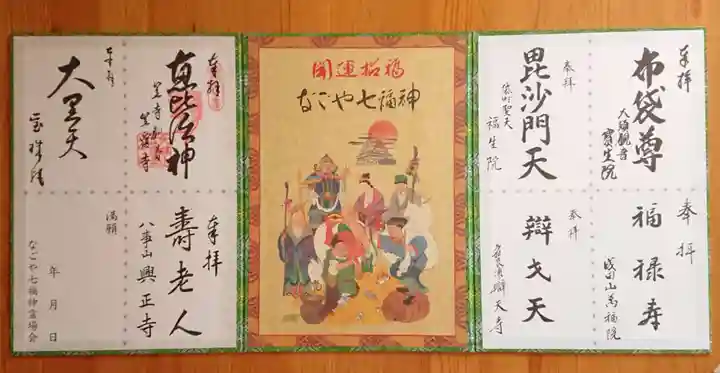 奉拝
布袋尊
大須観音
寳生院
奉拝
毘沙門天
袋町聖天
福生院
奉拝
福禄寿
成田山萬福院
奉拝
辯才天
天寺
開運招福
なごや七福神
奉拝
恵比須神
笠寺観音
笠覆寺
奉拝
大黒天
宝珠院
奉拝
壽老人
八事山
興正寺
満願
年月日
なごや七福神霊場会